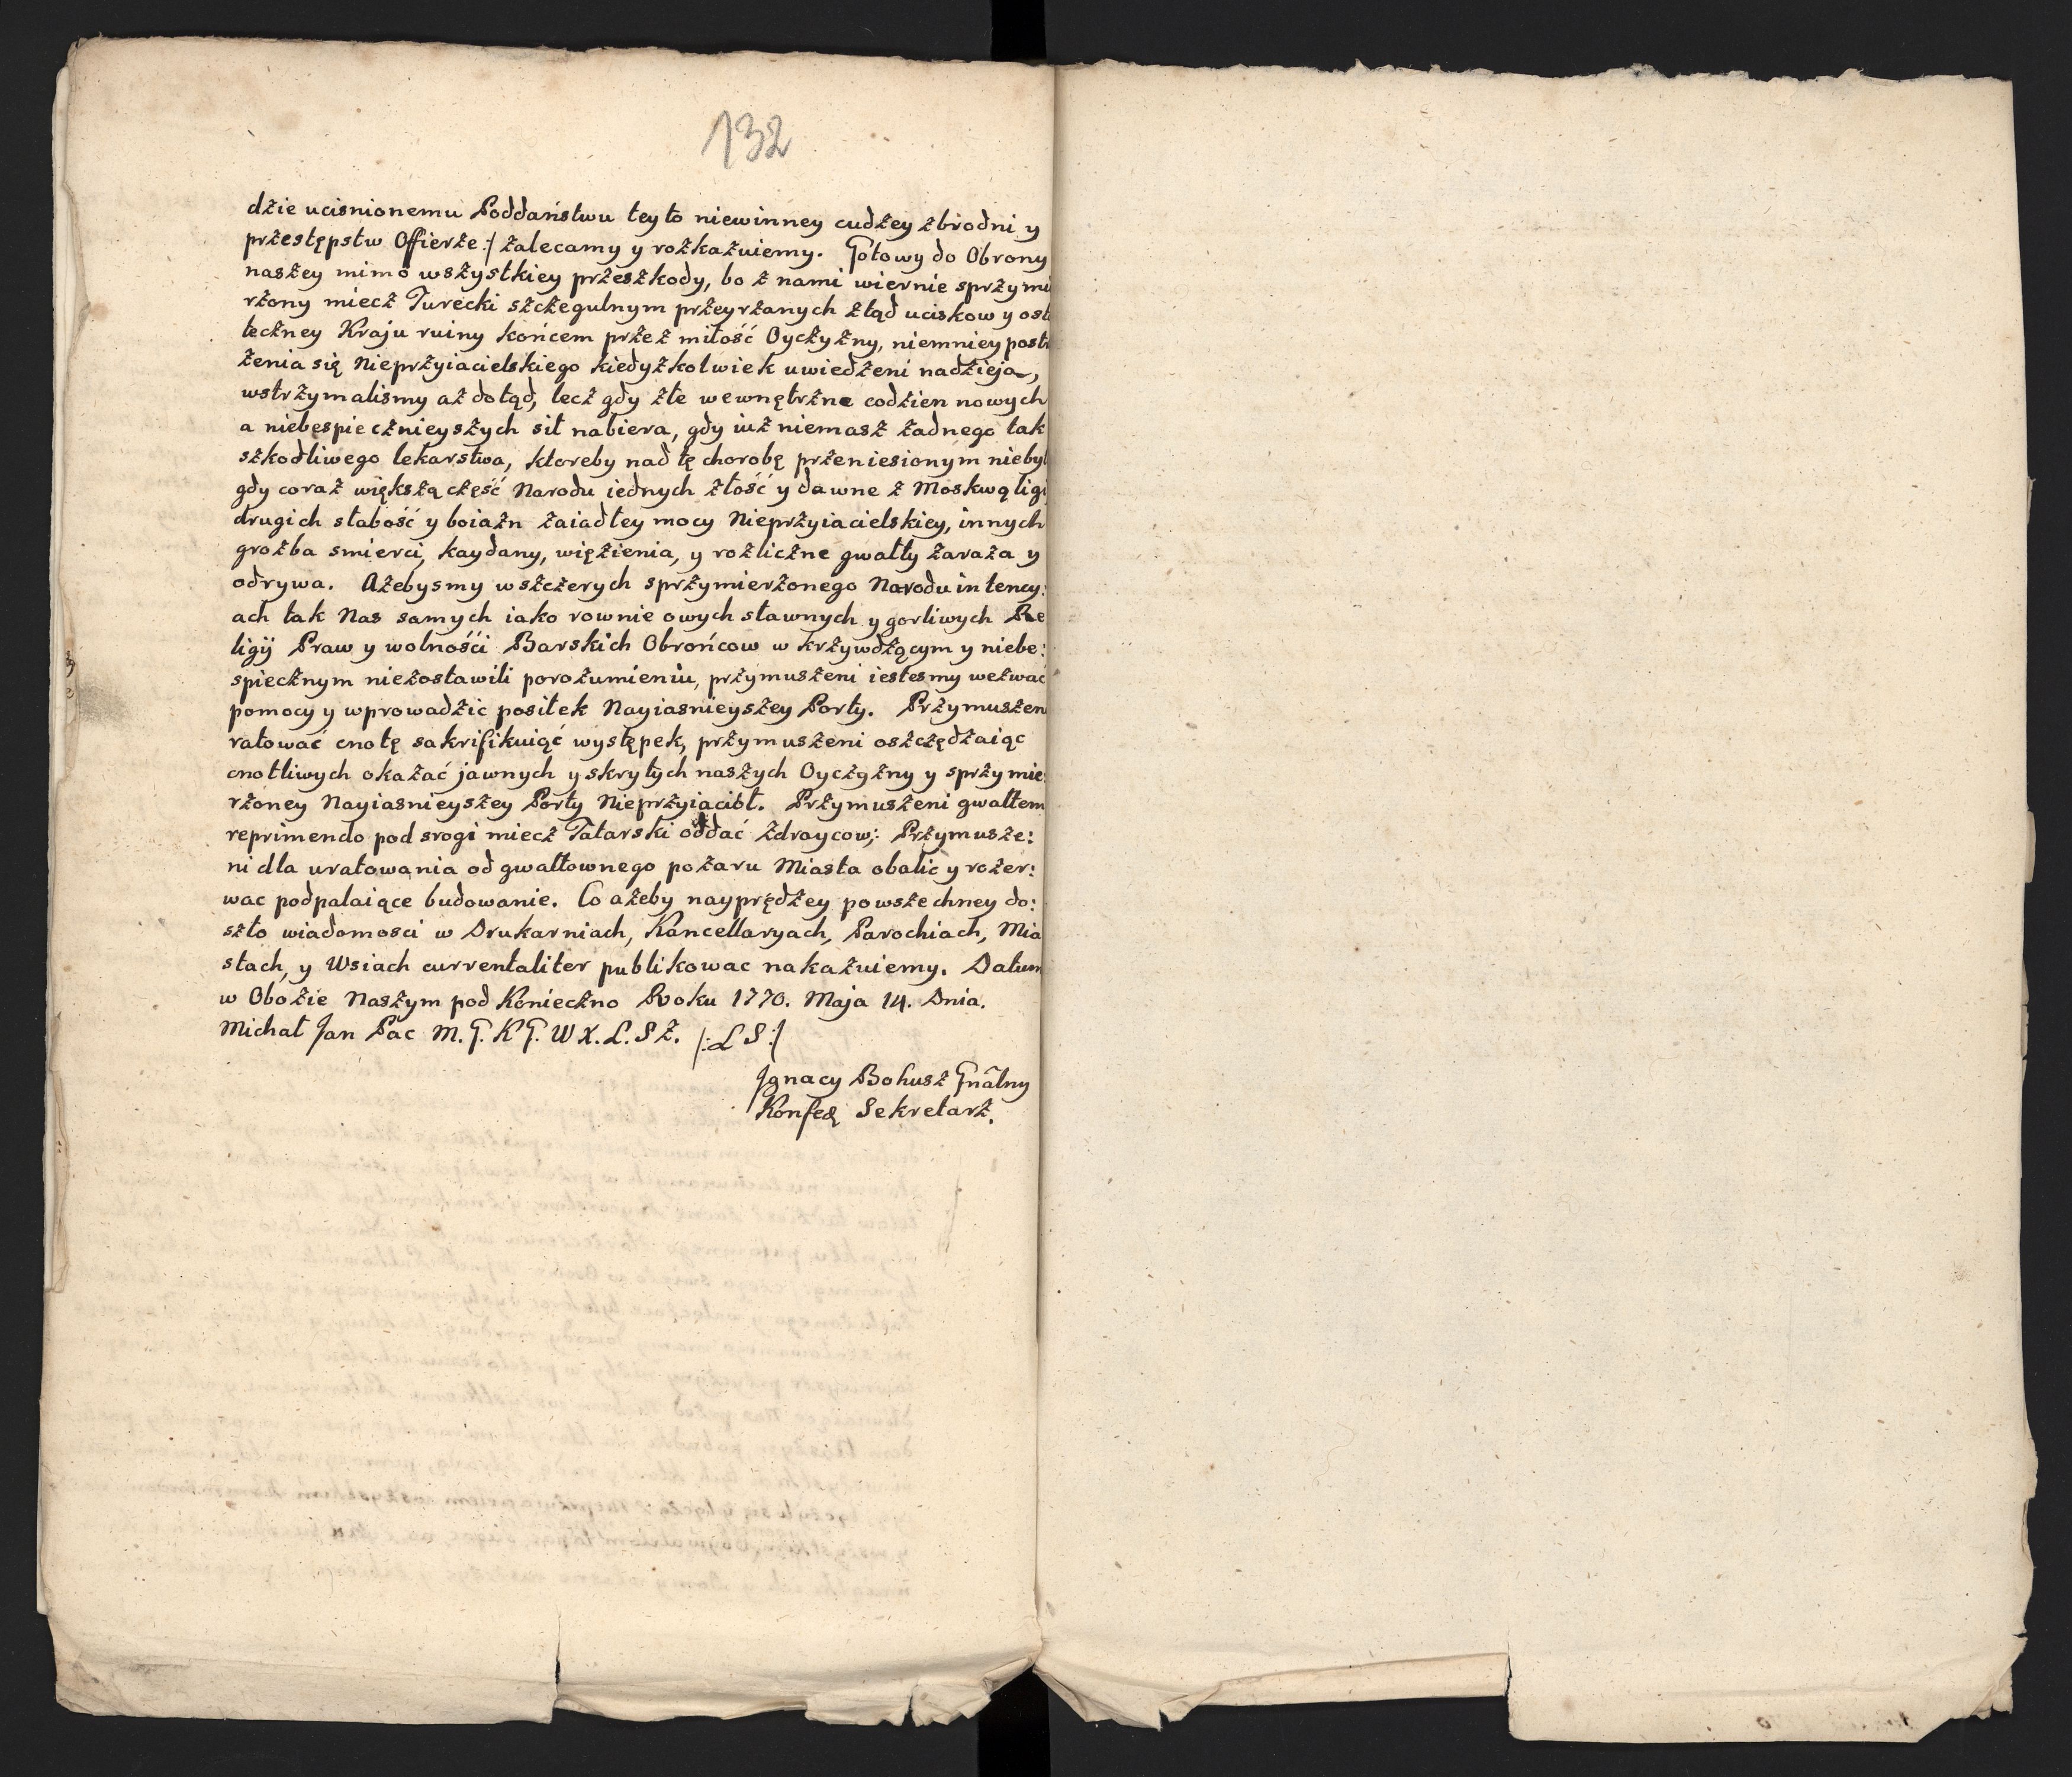 132
dzie ucisnionemu Poddaństwu tey to niewinney cudzey zbrodni y
przestępstw Offierze :/ zalecamy y rozkazuiemy. Gotowy do Obrony
naszey mimo wszystkiey przeszkody, bo z nami wiernie sprzymi
rzony miecz Turecki szczegulnym przeyrzanych ztąd uciskow y ost
teczney Kraju ruiny końcem przez miłość Oyczyzny, niemniey postr
zenia się Nieprzyiacielskiego kiedyzkolwiek uwiedzeni nadzieją,
wstrzymalismy aż dotąd, lecz gdy złe wewnętrzne codzien nowych
a niebespiecznieyszych sił nabiera, gdy iuż niemasz żadnego tak
szkodliwego lekarstwa, ktoreby nad tę chorobę przeniesionym niebył
gdy coraz większą część Narodu iednych złość y dawne z Moskwą ligi
drugich słabość y boiazn zaiadłey mocy Nieprzyiacielskiey, innych
grozba smierci, kaydany, więzienia, y rozliczne gwałty zaraża y
odrywa. Ażebysmy w szczerych sprzymierzonego Narodu intency:
ach tak Nas samych iako rownie owych sławnych y gorliwych Re
ligij Praw y wolnośći Barskich Obrońcow w krzywdzącym y niebe:
spiecznym niezostawili porozumieniu, przymuszeni iestesmy wezwać
pomocy y wprowadzić posiłek Nayiasnieyszey Porty. Przymuszen
ratować cnotę sakrifikuiąć występek, przymuszeni oszczędzaiąc
cnotliwych okazać jawnych y skrytych naszych Oyczyzny y sprzymie:
rzoney Nayiasnieyszey Porty Nieprzyiacioł. Przymuszeni gwałtem
reprimendo pod srogi miecz Tatarski oddać zdraycow; Przymusze:
ni dla uratowania od gwałtownego pożaru Miasta obalic y rozer:
wac podpalaiące budowanie. Co ażeby nayprędzey powszechney do:
szło wiadomosci w Drukarniach, Kancellaryach, Parochiach, Mia
stach, y Wsiach currentaliter publikowac nakazuiemy. Datum
w Obozie Naszym pod Konieczno Roku 1770. Maja 14. Dnia.
Michał Jan Pac M. G. K G. W X. L. S Z. /: L S :/
Jgnacy Bohusz Gnãlny
Konfed Sekretarz.